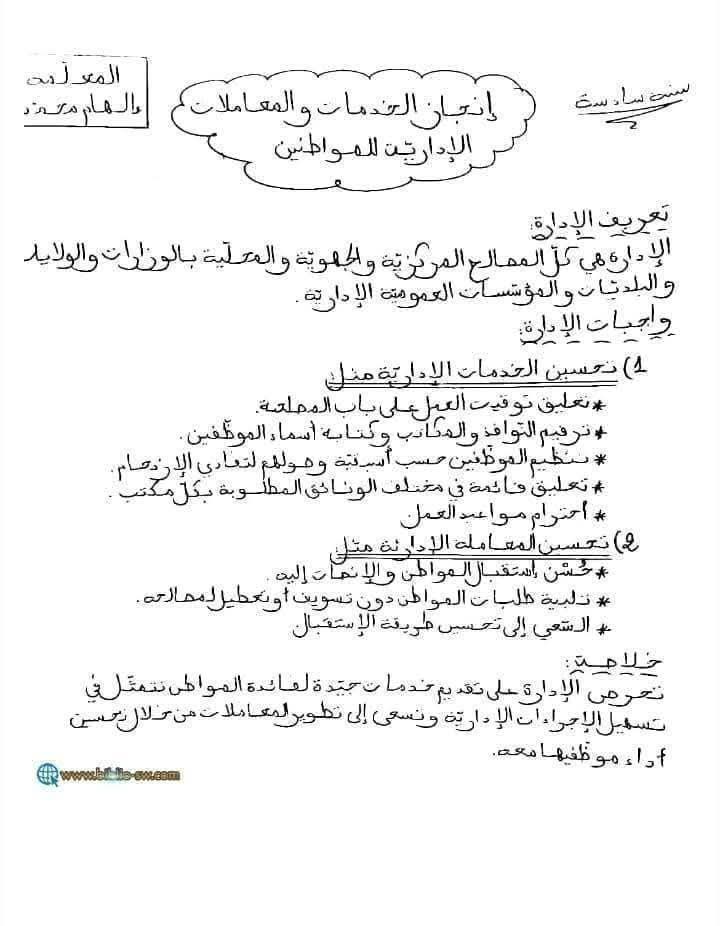 سنة سادسة
المعلّمة
إنجاز الخدمات والمعاملات
الإداريّة للمواطنين
تعريف الإدارة:
الإدارة هي كلّ المصالح المركزيّة والجهويّة والمحلّية بالوزارات والولايات
والبلديّات والمؤسّسات العموميّة الإداريّة.
واجبات الإدارة:
1) تحسين الخدمات الإداريّة مثل
* تعليق توقيت العمل على باب المصلحة.
* ترقيم النوافذ والمكاتب وكتابة أسماء الموظّفين.
* تنظيم الموظّفين حسب أسبقيّة وصولهم لتفادي الإزدحام.
* تعليق قائمة في مختلف الوثائق المطلوبة بكلّ مكتب.
* احترام مواعيد العمل
2) تحسين المعاملة الإداريّة مثل
* حُسْن إستقبال المواطن والإنصات إليه.
* تلبية طلبات المواطن دون تسويف أو تعطيل لمصالحه.
* السّعي إلى تحسين طريقة الإستقبال
خلاصة:
تحرص الإدارة على تقديم خدمات جيّدة لفائدة المواطن تتمثّل في
تسهيل الإجراءات الإداريّة وتسعى إلى تطوير المعاملات من خلال تحسين
أداء موظّفيها معه.
www.biblio-sw.com